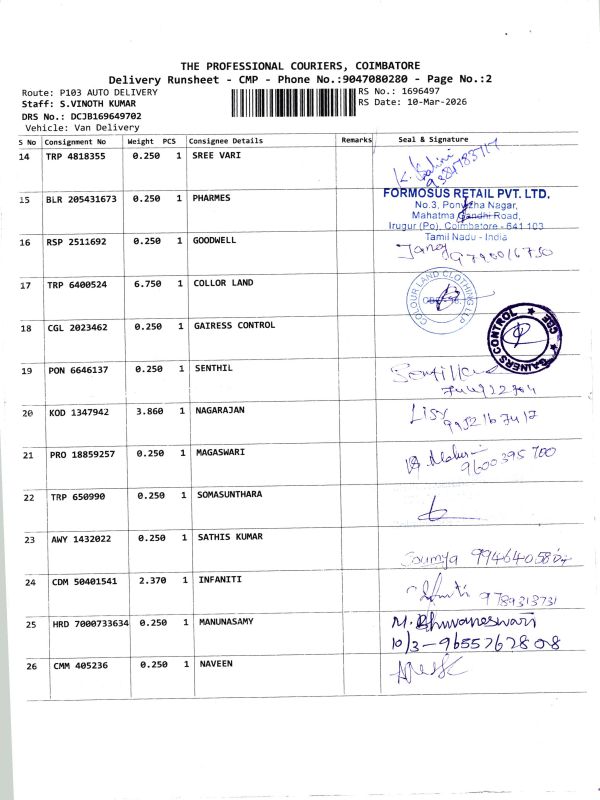 THE PROFESSIONAL COURIERS, COIMBATORE
Delivery Runsheet - CMP - Phone No.:9047080280 - Page No.:2
Route: P103 AUTO DELIVERY RS No.: 1696497
Staff: S.VINOTH KUMAR RS Date: 10-Mar-2026
DRS No.: DCJB169649702
Vehicle: Van Delivery
S No Consignment No Weight PCS Consignee Details Remarks Seal & Signature
14 TRP 4818355 0.250 1 SREE VARI
15 BLR 205431673 0.250 1 PHARMES
FORMOSUS RETAIL PVT. LTD.
No.3, Nagar,
Mahatma Gandhi Road,
Irugur (Po), Coimbatore - 641 103
Tamil Nadu - India
16 RSP 2511692 0.250 1 GOODWELL
17 TRP 6400524 6.750 1 COLLOR LAND
COLOUR LAND CLOTHING LLP
18 CGL 2023462 0.250 1 GAIRESS CONTROL
GAINERS CONTROL CBE
19 PON 6646137 0.250 1 SENTHIL
20 KOD 1347942 3.860 1 NAGARAJAN
Lisy
21 PRO 18859257 0.250 1 MAGASWARI
9600395700
22 TRP 650990 0.250 1 SOMASUNTHARA
23 AWY 1432022 0.250 1 SATHIS KUMAR
Soumya
24 CDM 50401541 2.370 1 INFANITI
25 HRD 7000733634 0.250 1 MANUNASAMY
M. Bhuvaneswari
10/3 - 9655762808
26 CMM 405236 0.250 1 NAVEEN